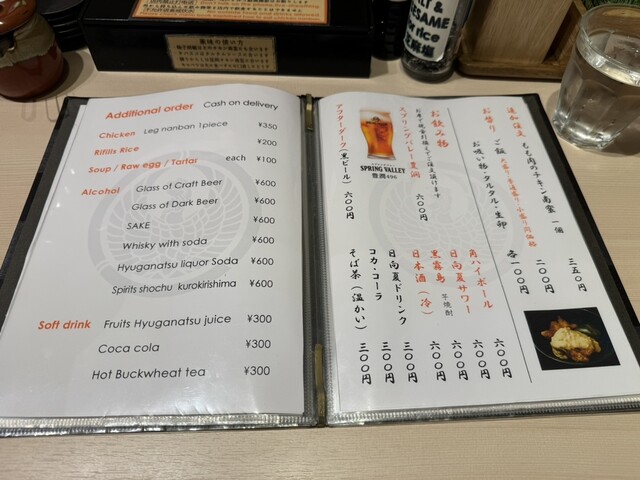 薬味の使い方
SALT &
SESAME
for rice
Additional order Cash on delivery
Chicken Leg nanban 1piece ¥350
Rifills Rice ¥200
Soup / Raw egg / Tartar each ¥100
Alcohol Glass of Craft Beer ¥600
Glass of Dark Beer ¥600
SAKE ¥600
Whisky with soda ¥600
Hyuganatsu liquor Soda ¥600
Spirits shochu kurokirishima ¥600
Soft drink Fruits Hyuganatsu juice ¥300
Coca cola ¥300
Hot Buckwheat tea ¥300
追加注文 もも肉のチキン南蛮 一個 三五〇円
お替り ご飯 二〇〇円
お吸い物・タルタル・生卵 各一〇〇円
お飲み物
お席で現金引換えでご注文頂けます
スプリングバレー豊潤 六〇〇円
アフターダーク(黒ビール) 六〇〇円
SPRING VALLEY
豊潤 496
角ハイボール 六〇〇円
日向夏サワー 六〇〇円
黒霧島 芋焼酎 六〇〇円
日本酒(冷) 六〇〇円
日向夏ドリンク 三〇〇円
コカ・コーラ 三〇〇円
そば茶(温かい) 三〇〇円